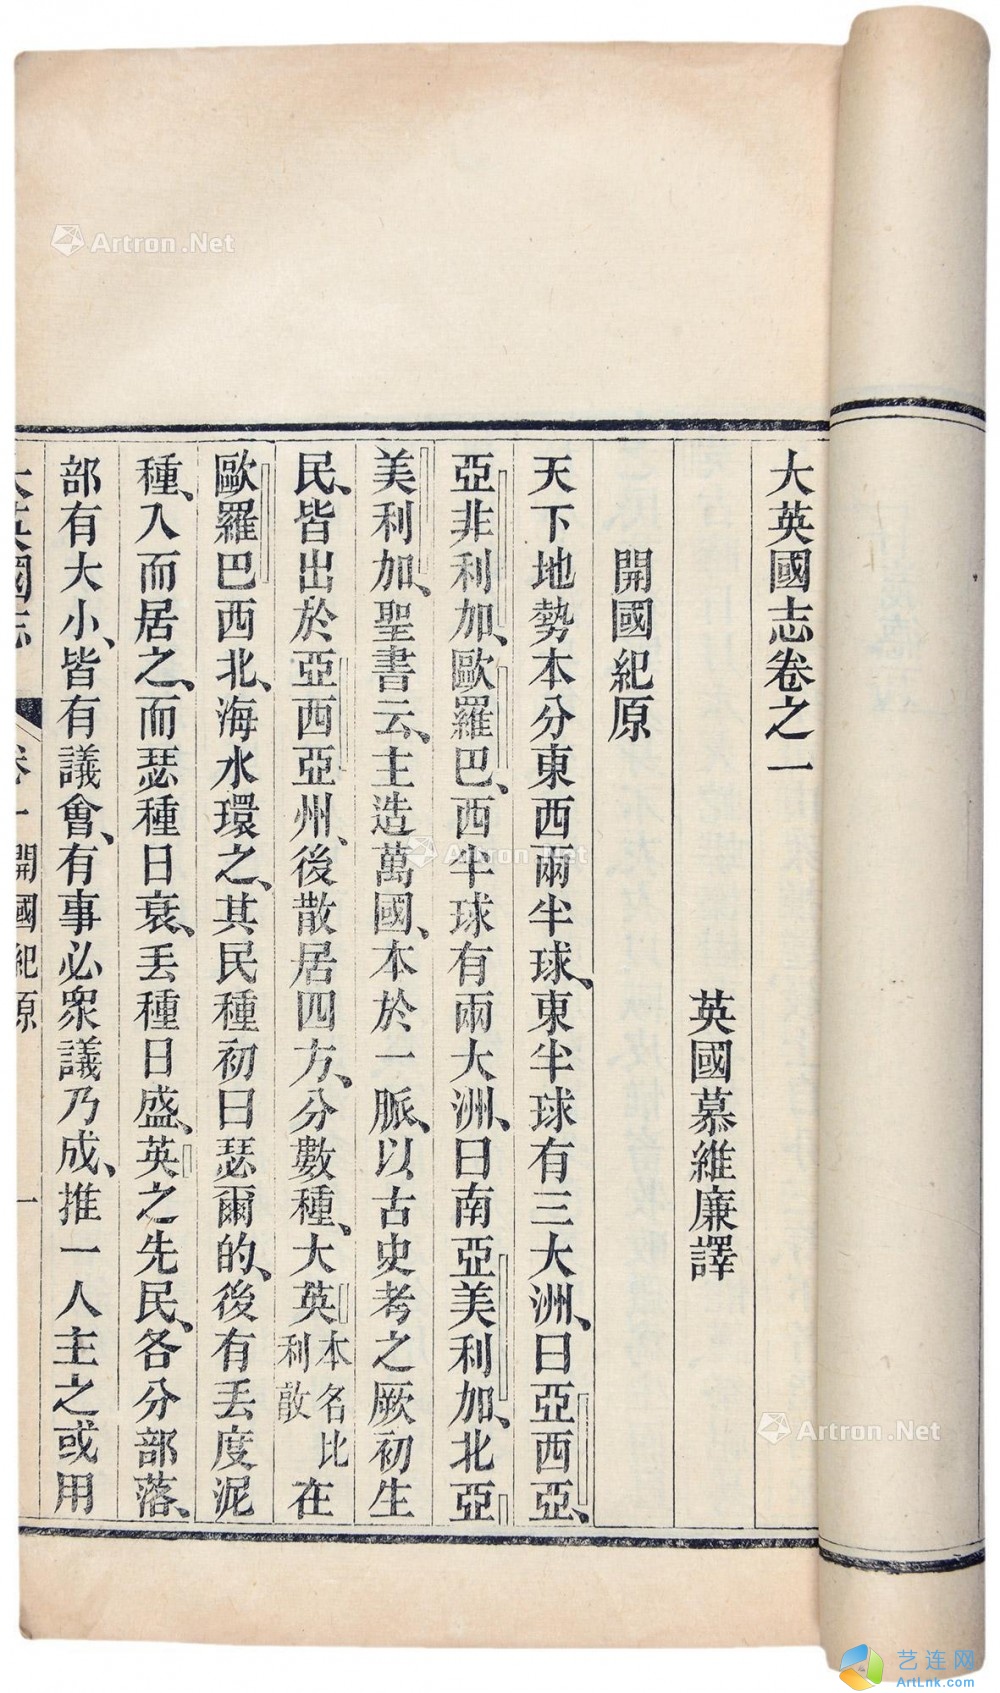 大英國志卷之一
英國慕維廉譯
開國紀原
天下地勢本分東西兩半球、東半球有三大洲、曰亞西亞、
亞非利加、歐羅巴、西半球有兩大洲、曰南亞美利加、北亞
美利加、聖書云、主造萬國、本於一脈、以古史考之厥初生
民、皆出於亞西亞州、後散居四方、分數種、大英本名比利敳在
歐羅巴西北、海水環之、其民種初曰瑟爾的、後有丢度泥
種、入而居之、而瑟種日衰、丢種日盛、英之先民、各分部落、
部有大小、皆有議會、有事必衆議乃成、推一人主之或用
大英國志 卷一 開國紀原 一
Artron.Net
Artron.Net
Artron.Net
艺连网
ArtLnk.com